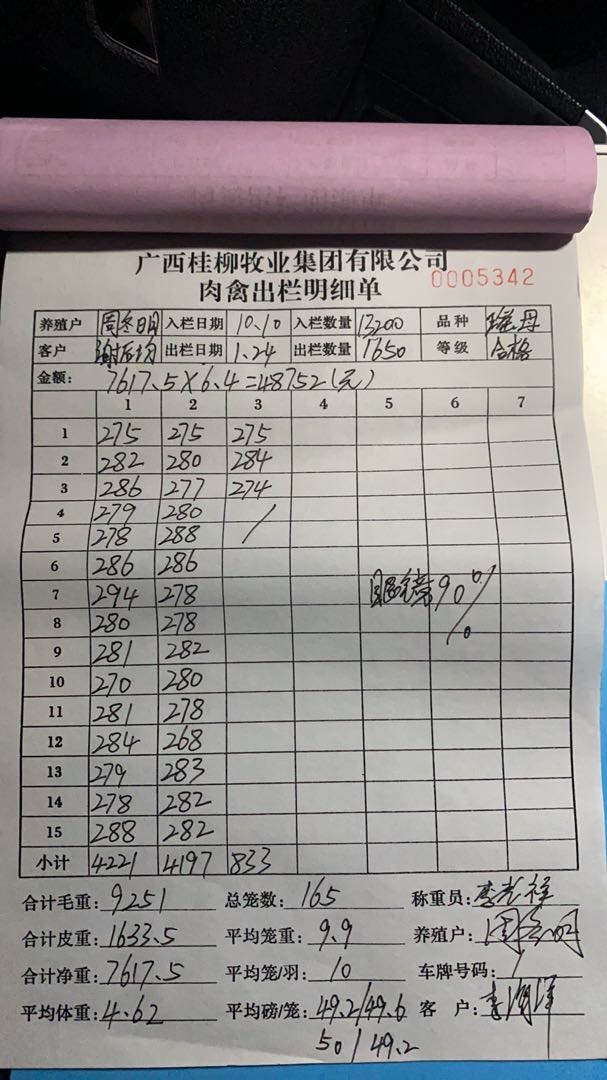 广西桂柳牧业集团有限公司
肉禽出栏明细单 0005342
养殖户 入栏日期 10.10 入栏数量 13200 品种
客户 出栏日期 1.24 出栏数量 1650 等级 合格
金额: 7617.5×6.4=48752(元)
1 2 3 4 5 6 7
1 275 275 275
2 282 280 284
3 286 277 274
4 279 280 /
5 278 288
6 286 286
7 294 278 眼镜90%
8 280 278
9 281 282
10 270 280
11 281 278
12 284 268
13 279 283
14 278 282
15 288 282
小计 4221 4197 833
合计毛重: 9251 总笼数: 165 称重员: 李光祥
合计皮重: 1633.5 平均笼重: 9.9 养殖户:
合计净重: 7617.5 平均笼/羽: 10 车牌号码: /
平均体重: 4.62 平均磅/笼: 49.2/49.6 客 户:
50/49.2